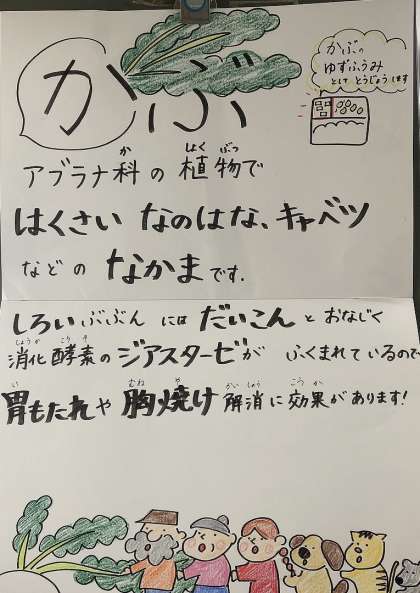 かぶ
かぶの
ゆずふうみ
として とうじょうします
アブラナ科の植物で
はくさい なのはな、キャベツ
などの なかまです.
しろいぶぶん には だいこん と おなじく
消化酵素のジアスターゼが ふくまれているので
胃もたれや胸焼け解消に効果があります!